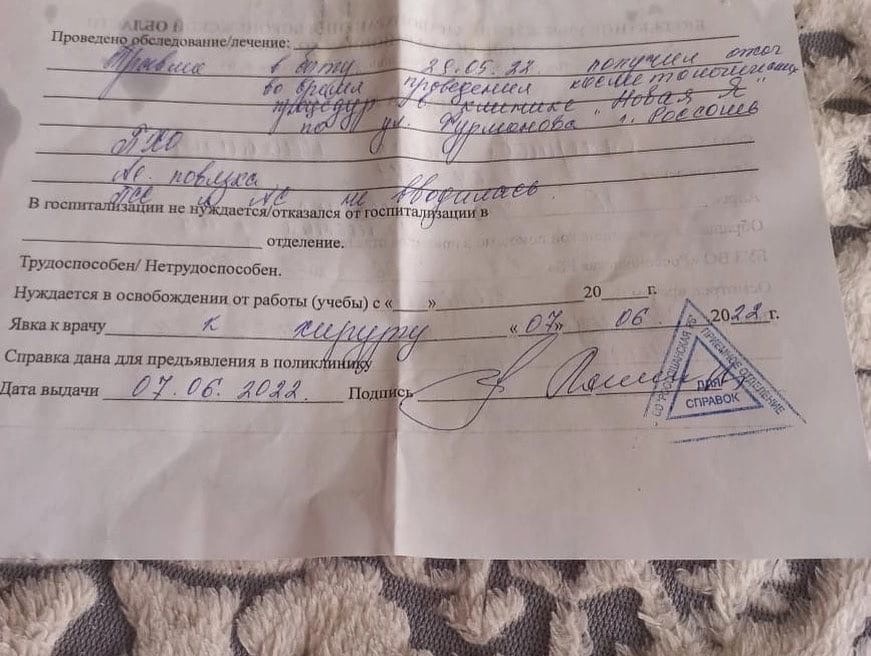 Й ОБЛА
Проведено обследование/лечение:
Травма в быту 29.05.22 получил ожог
во время проведения косметологических
процедур в клинике "Новая Я"
по ул. Фурманова г. Россошь
ПХО
Ас. повязка
ПСС и АС не вводилась.
В госпитализации не нуждается/отказался от госпитализации в
отделение.
Трудоспособен/ Нетрудоспособен.
Нуждается в освобождении от работы (учебы) с «___»____________20____г.
Явка к врачу к хирургу «07» 06. 2022 г.
Справка дана для предъявления в поликлинику
Дата выдачи 07.06.2022. Подпись
РОССОШАНСКАЯ РБ
ПРИЕМНОЕ ОТДЕЛЕНИЕ
ДЛЯ
СПРАВОК